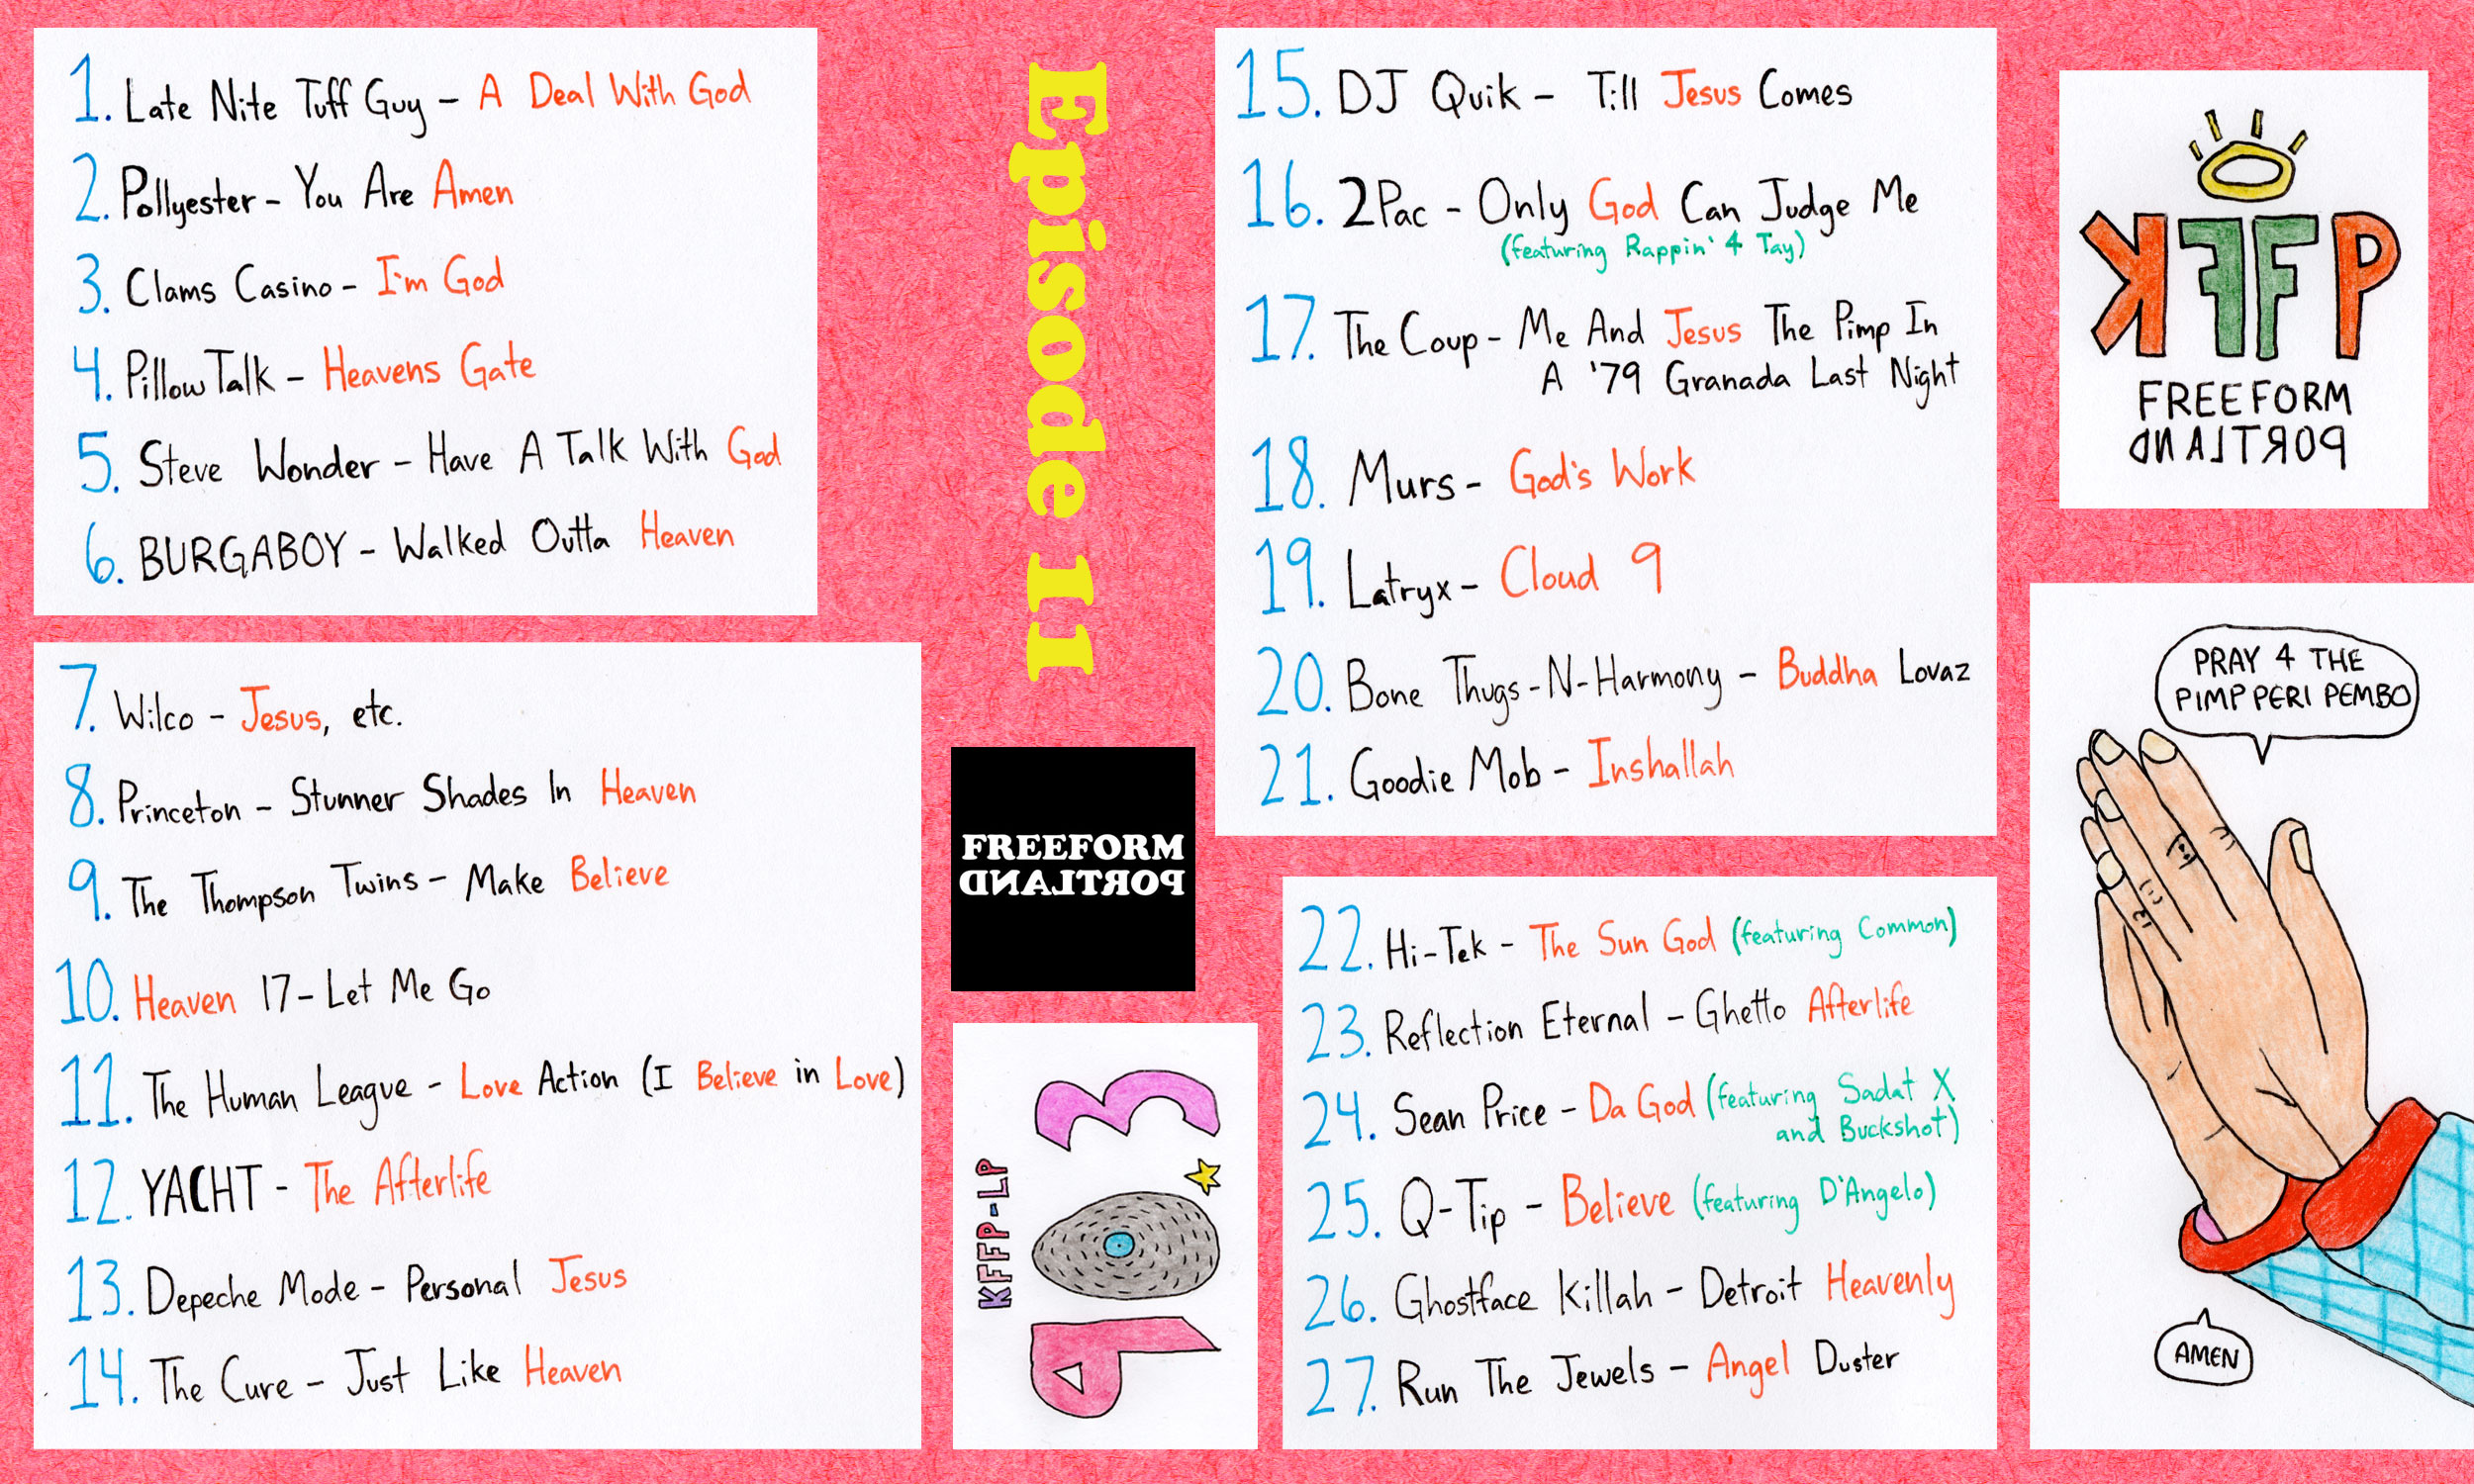 1. Late Nite Tuff Guy - A Deal With God
2. Pollyester - You Are Amen
3. Clams Casino - I'm God
4. Pillow Talk - Heavens Gate
5. Steve Wonder - Have A Talk With God
6. BURGABOY - Walked Outta Heaven
7. Wilco - Jesus, etc.
8. Princeton - Stunner Shades In Heaven
9. The Thompson Twins - Make Believe
10. Heaven 17 - Let Me Go
11. The Human League - Love Action (I Believe in Love)
12. YACHT - The Afterlife
13. Depeche Mode - Personal Jesus
14. The Cure - Just Like Heaven
Episode II
FREEFORM
PORTLAND
KFFP-LP
90.3
15. DJ Quik - Till Jesus Comes
16. 2Pac - Only God Can Judge Me
(featuring Rappin' 4 Tay)
17. The Coup - Me And Jesus The Pimp In
A '79 Granada Last Night
18. Murs - God's Work
19. Latryx - Cloud 9
20. Bone Thugs-N-Harmony - Buddha Lovaz
21. Goodie Mob - Inshallah
22. Hi-Tek - The Sun God (featuring Common)
23. Reflection Eternal - Ghetto Afterlife
24. Sean Price - Da God (featuring Sadat X
and Buckshot)
25. Q-Tip - Believe (featuring D'Angelo)
26. Ghostface Killah - Detroit Heavenly
27. Run The Jewels - Angel Duster
KFFP
FREEFORM
PORTLAND
PRAY 4 THE
PIMP PERI PEMBO
AMEN